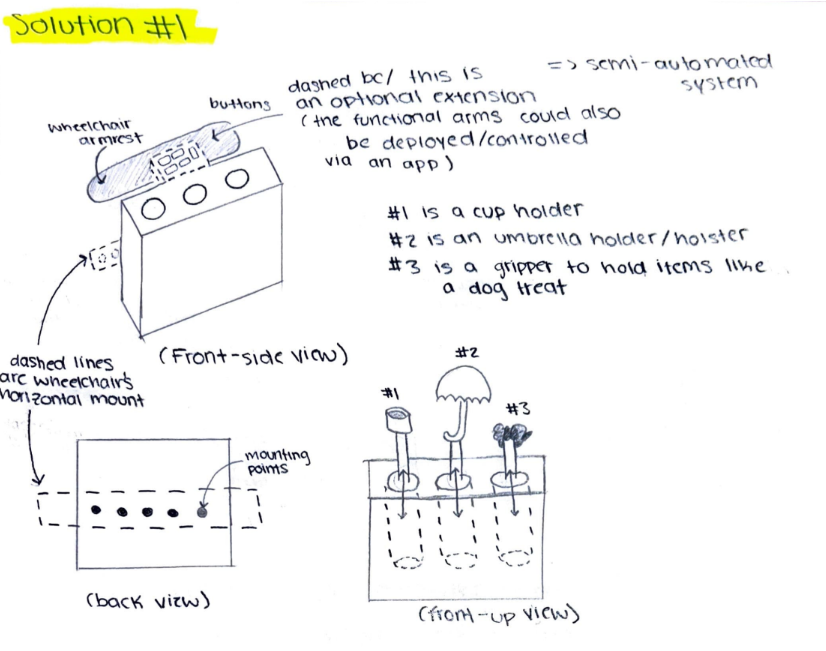 Solution #1
dashed bc/ this is
an optional extension
(the functional arms could also
be deployed/controlled
via an app)
=> semi-automated
system
buttons
wheelchair
armrest
#1 is a cup holder
#2 is an umbrella holder/holster
#3 is a gripper to hold items like
a dog treat
(Front-side view)
dashed lines
are wheelchair's
horizontal mount
mounting
points
(back view)
#1
#2
#3
(front-up view)